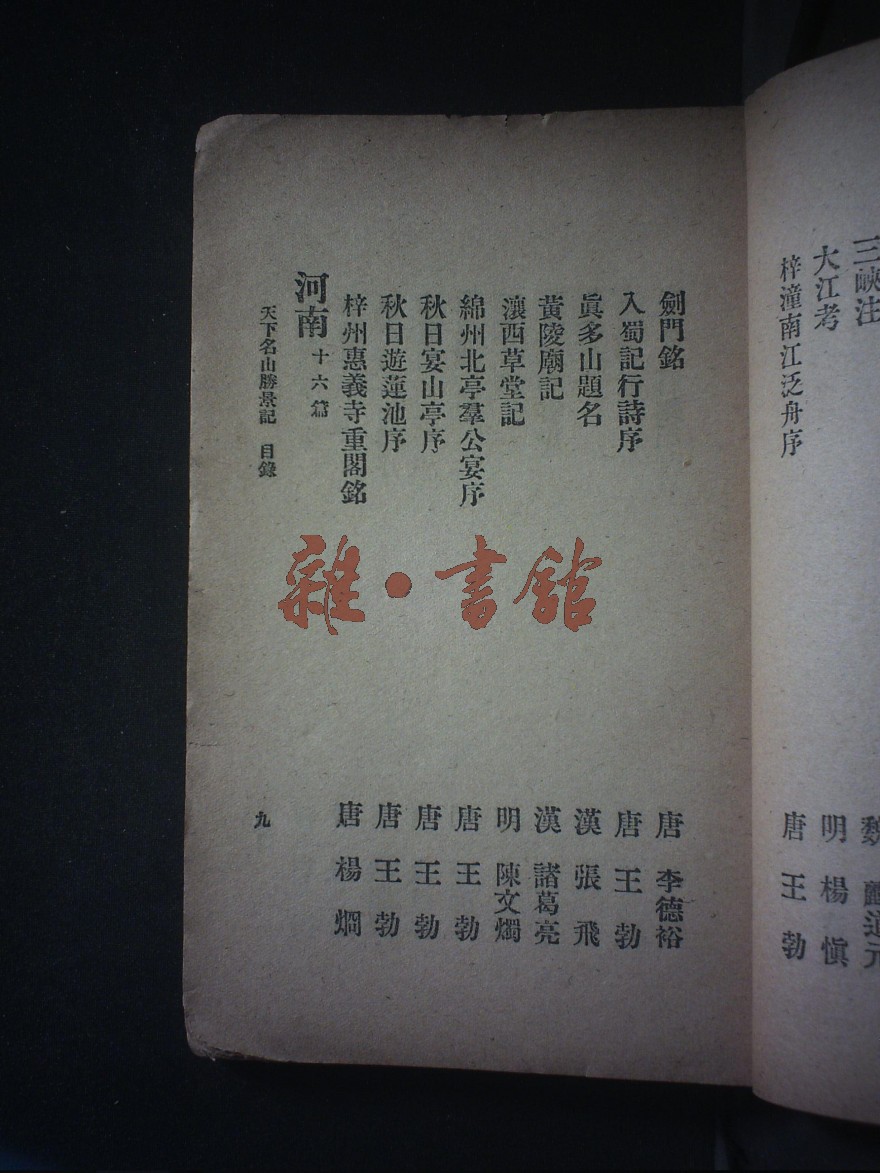 三峽注　魏　酈道元
大江考　明　楊慎
梓潼南江泛舟序　唐　王勃
劍門銘　唐　李德裕
入蜀記行詩序　唐　王勃
眞多山題名　漢　張飛
黃陵廟記　漢　諸葛亮
瀼西草堂記　明　陳文燭
綿州北亭羣公宴序　唐　王勃
秋日宴山亭序　唐　王勃
秋日遊蓮池序　唐　王勃
梓州惠義寺重閣銘　唐　楊烱
河南　十六篇
天下名山勝景記　目錄　九
雜·書館